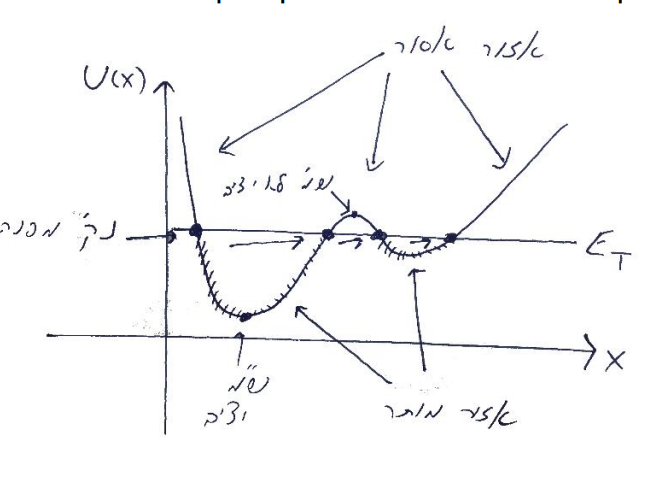 אזור אסור
U(x)
שמ״ לא יציב
נק׳ מפנה
E_T
x
שמ״
יציב
אזור מותר